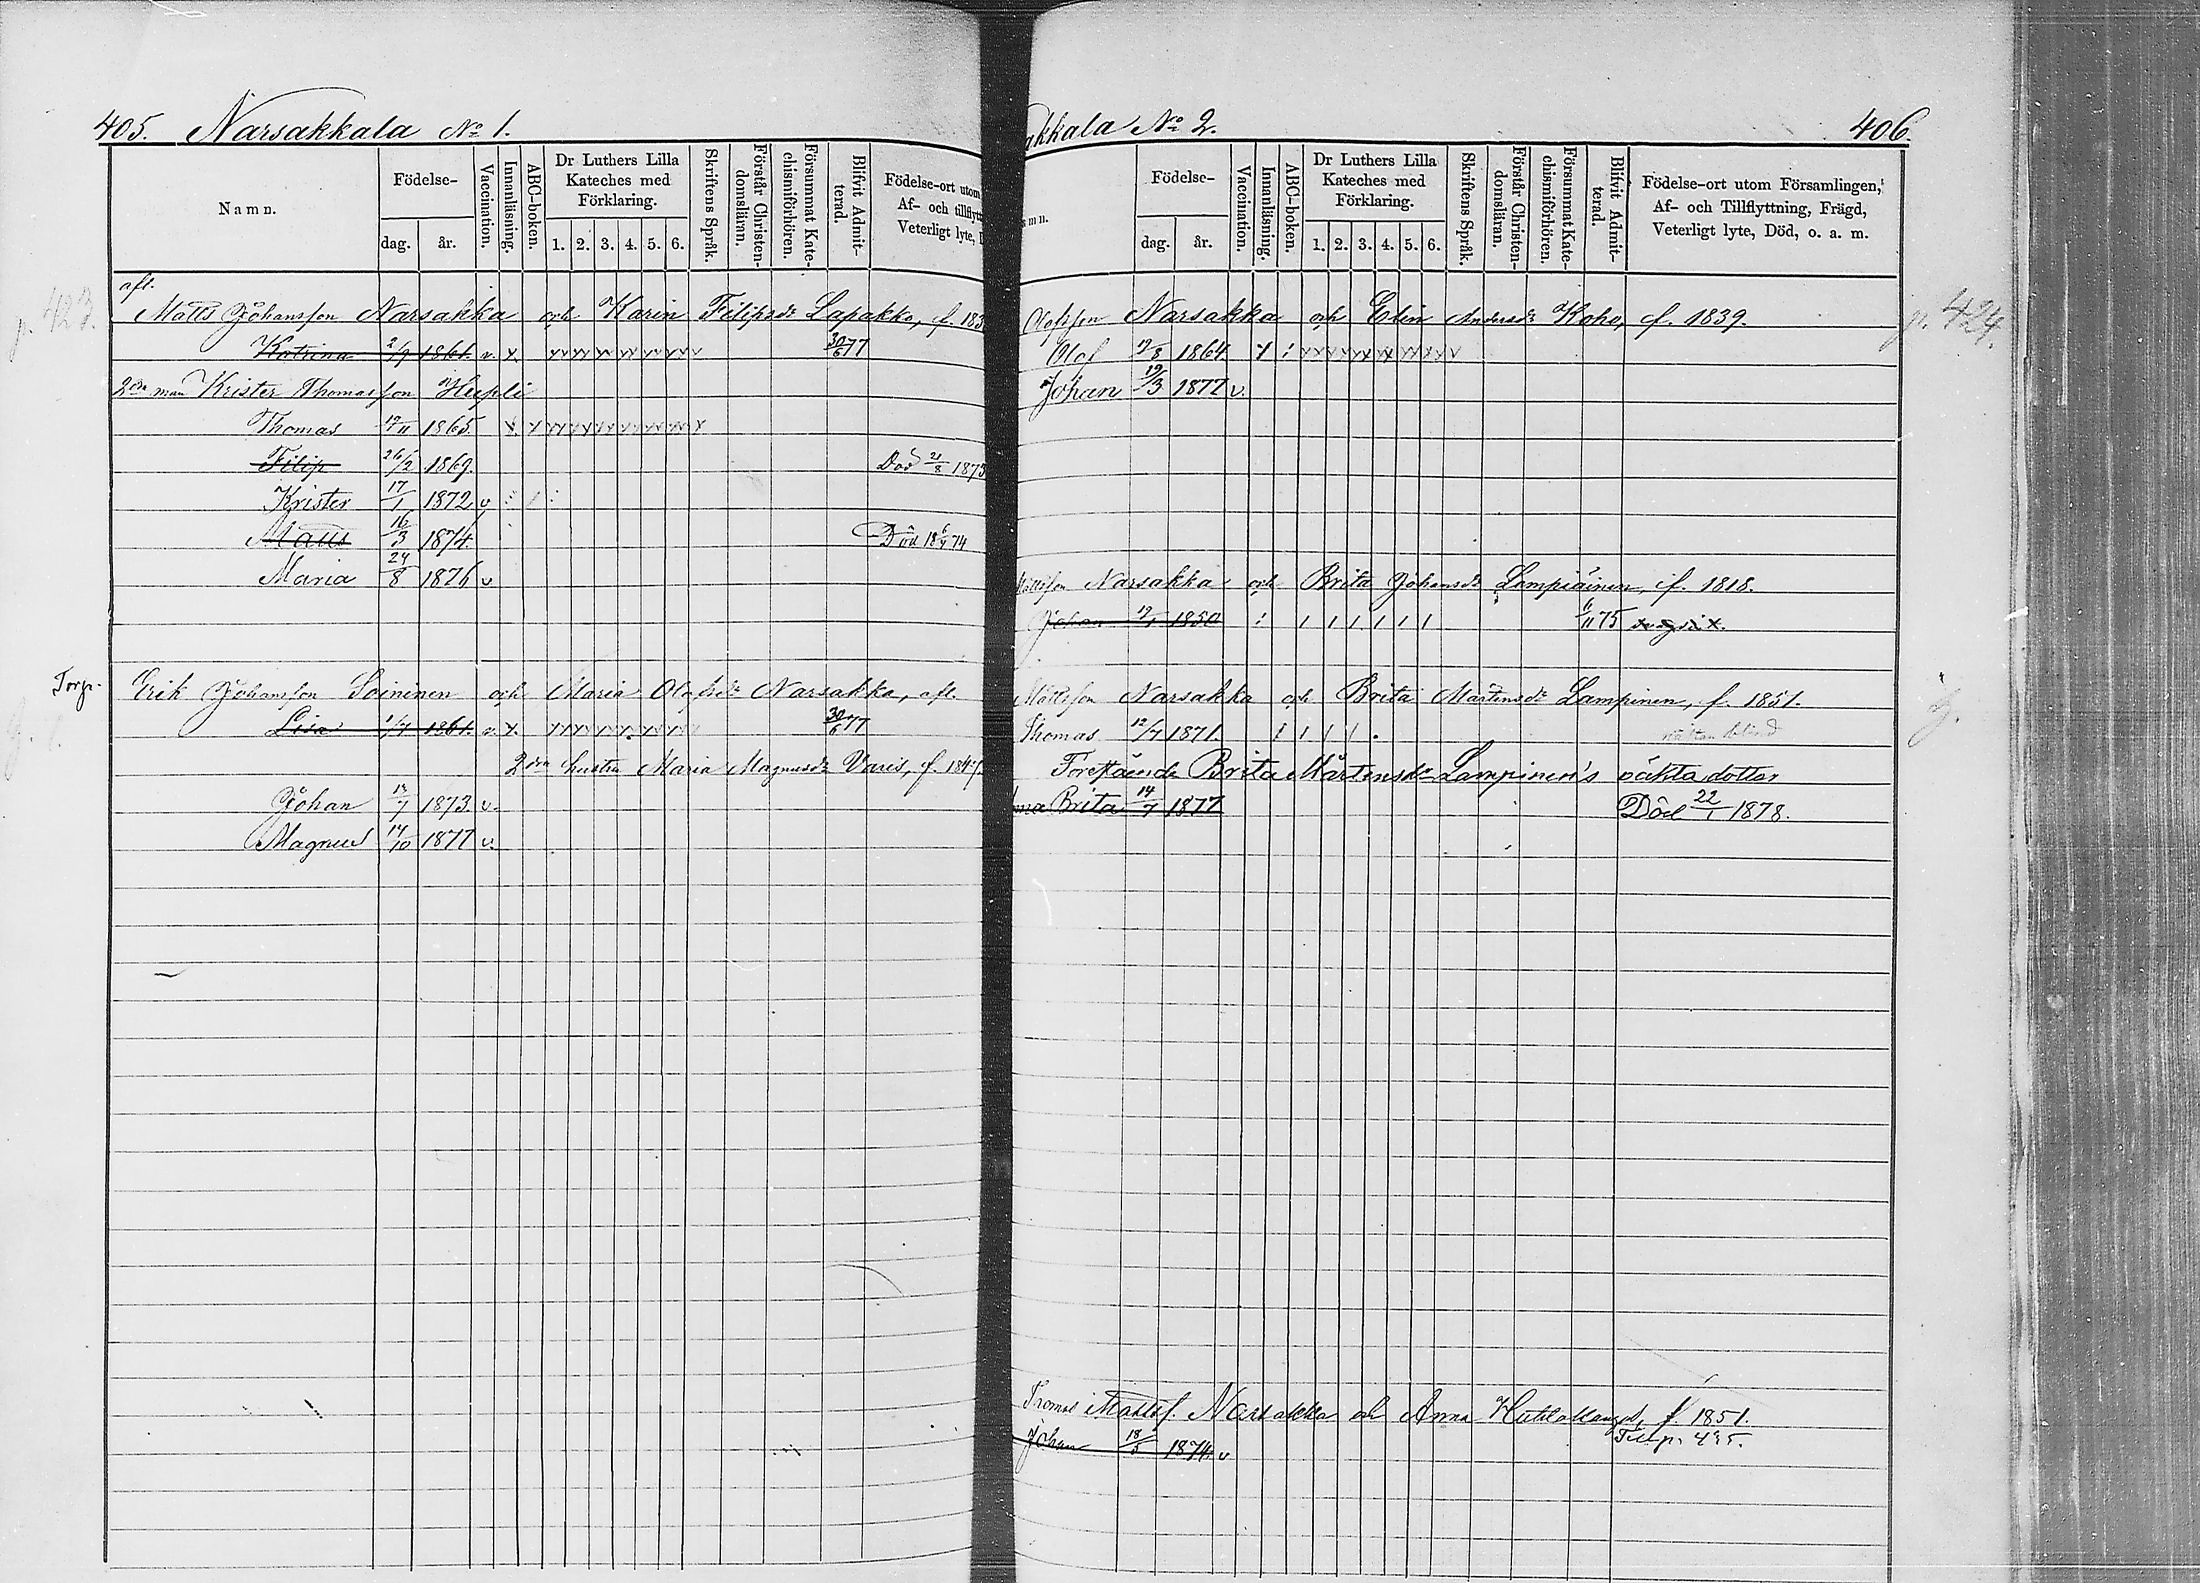 405. Narsakkala No 1.
Namn.
Födelse-
dag. år.
Vaccination.
Innanläsning.
ABC-boken.
Dr Luthers Lilla
Kateches med
Förklaring.
1. 2. 3. 4. 5. 6.
Skriftens Språk.
Förstår Christen-
domsläran.
Försummat Kate-
chismiförhören.
Blifvit Admit-
terad.
Födelse-ort utom
Af- och tillflytt
Veterligt lyte,
afl.
p. 423.
Matts Johansson Narsakka och Karin Filipsdr Lapakko, f. 183
Katrina 2/9 1861. v. x. 30/6 77
2dra man Krister Thomasson Hupli
Thomas 17/11 1865.
Filip 26/2 1869. Död 21/8 1873
Krister 17/1 1872 v
Matts 16/3 1874. Död 18 6/4 74
Maria 24/8 1876 v
Torp. Erik Johansson Soininen och Maria Olofsdr Narsakka, afl.
Lisa 1/7 1861. v. x. 30/6 77
2dra hustru Maria Magnusdr Varis, f. 1847.
Johan 13/7 1873. v.
Magnus 14/10 1877 v.
akkala No 2. 406.
mn.
Födelse-
dag. år.
Vaccination.
Innanläsning.
ABC-boken.
Dr Luthers Lilla
Kateches med
Förklaring.
1. 2. 3. 4. 5. 6.
Skriftens Språk.
Förstår Christen-
domsläran.
Försummat Kate-
chismiförhören.
Blifvit Admit-
terad.
Födelse-ort utom Församlingen,
Af- och Tillflyttning, Frägd,
Veterligt lyte, Död, o. a. m.
Olofsson Narsakka och Elin Andersdr Koho, f. 1839. p. 424.
Olof 19/8 1864.
Johan 19/3 1877 v.
Mattsson Narsakka och Brita Johansdr Lampiäinen, f. 1818.
Johan 17/1 1850 6/11 75
Mattsson Narsakka och Brita Mårtensdr Lampinen, f. 1851.
Thomas 12/7 1871. nästan blind
Föreståënde Brita Mårtensdr Lampinen's oäkta dotter
nna Brita 14/7 1877 Död 22/1 1878.
Thomas Mattsf. Narsakka och Anna f. 1851.
Johan 18/5 1874. v Till p. 435.